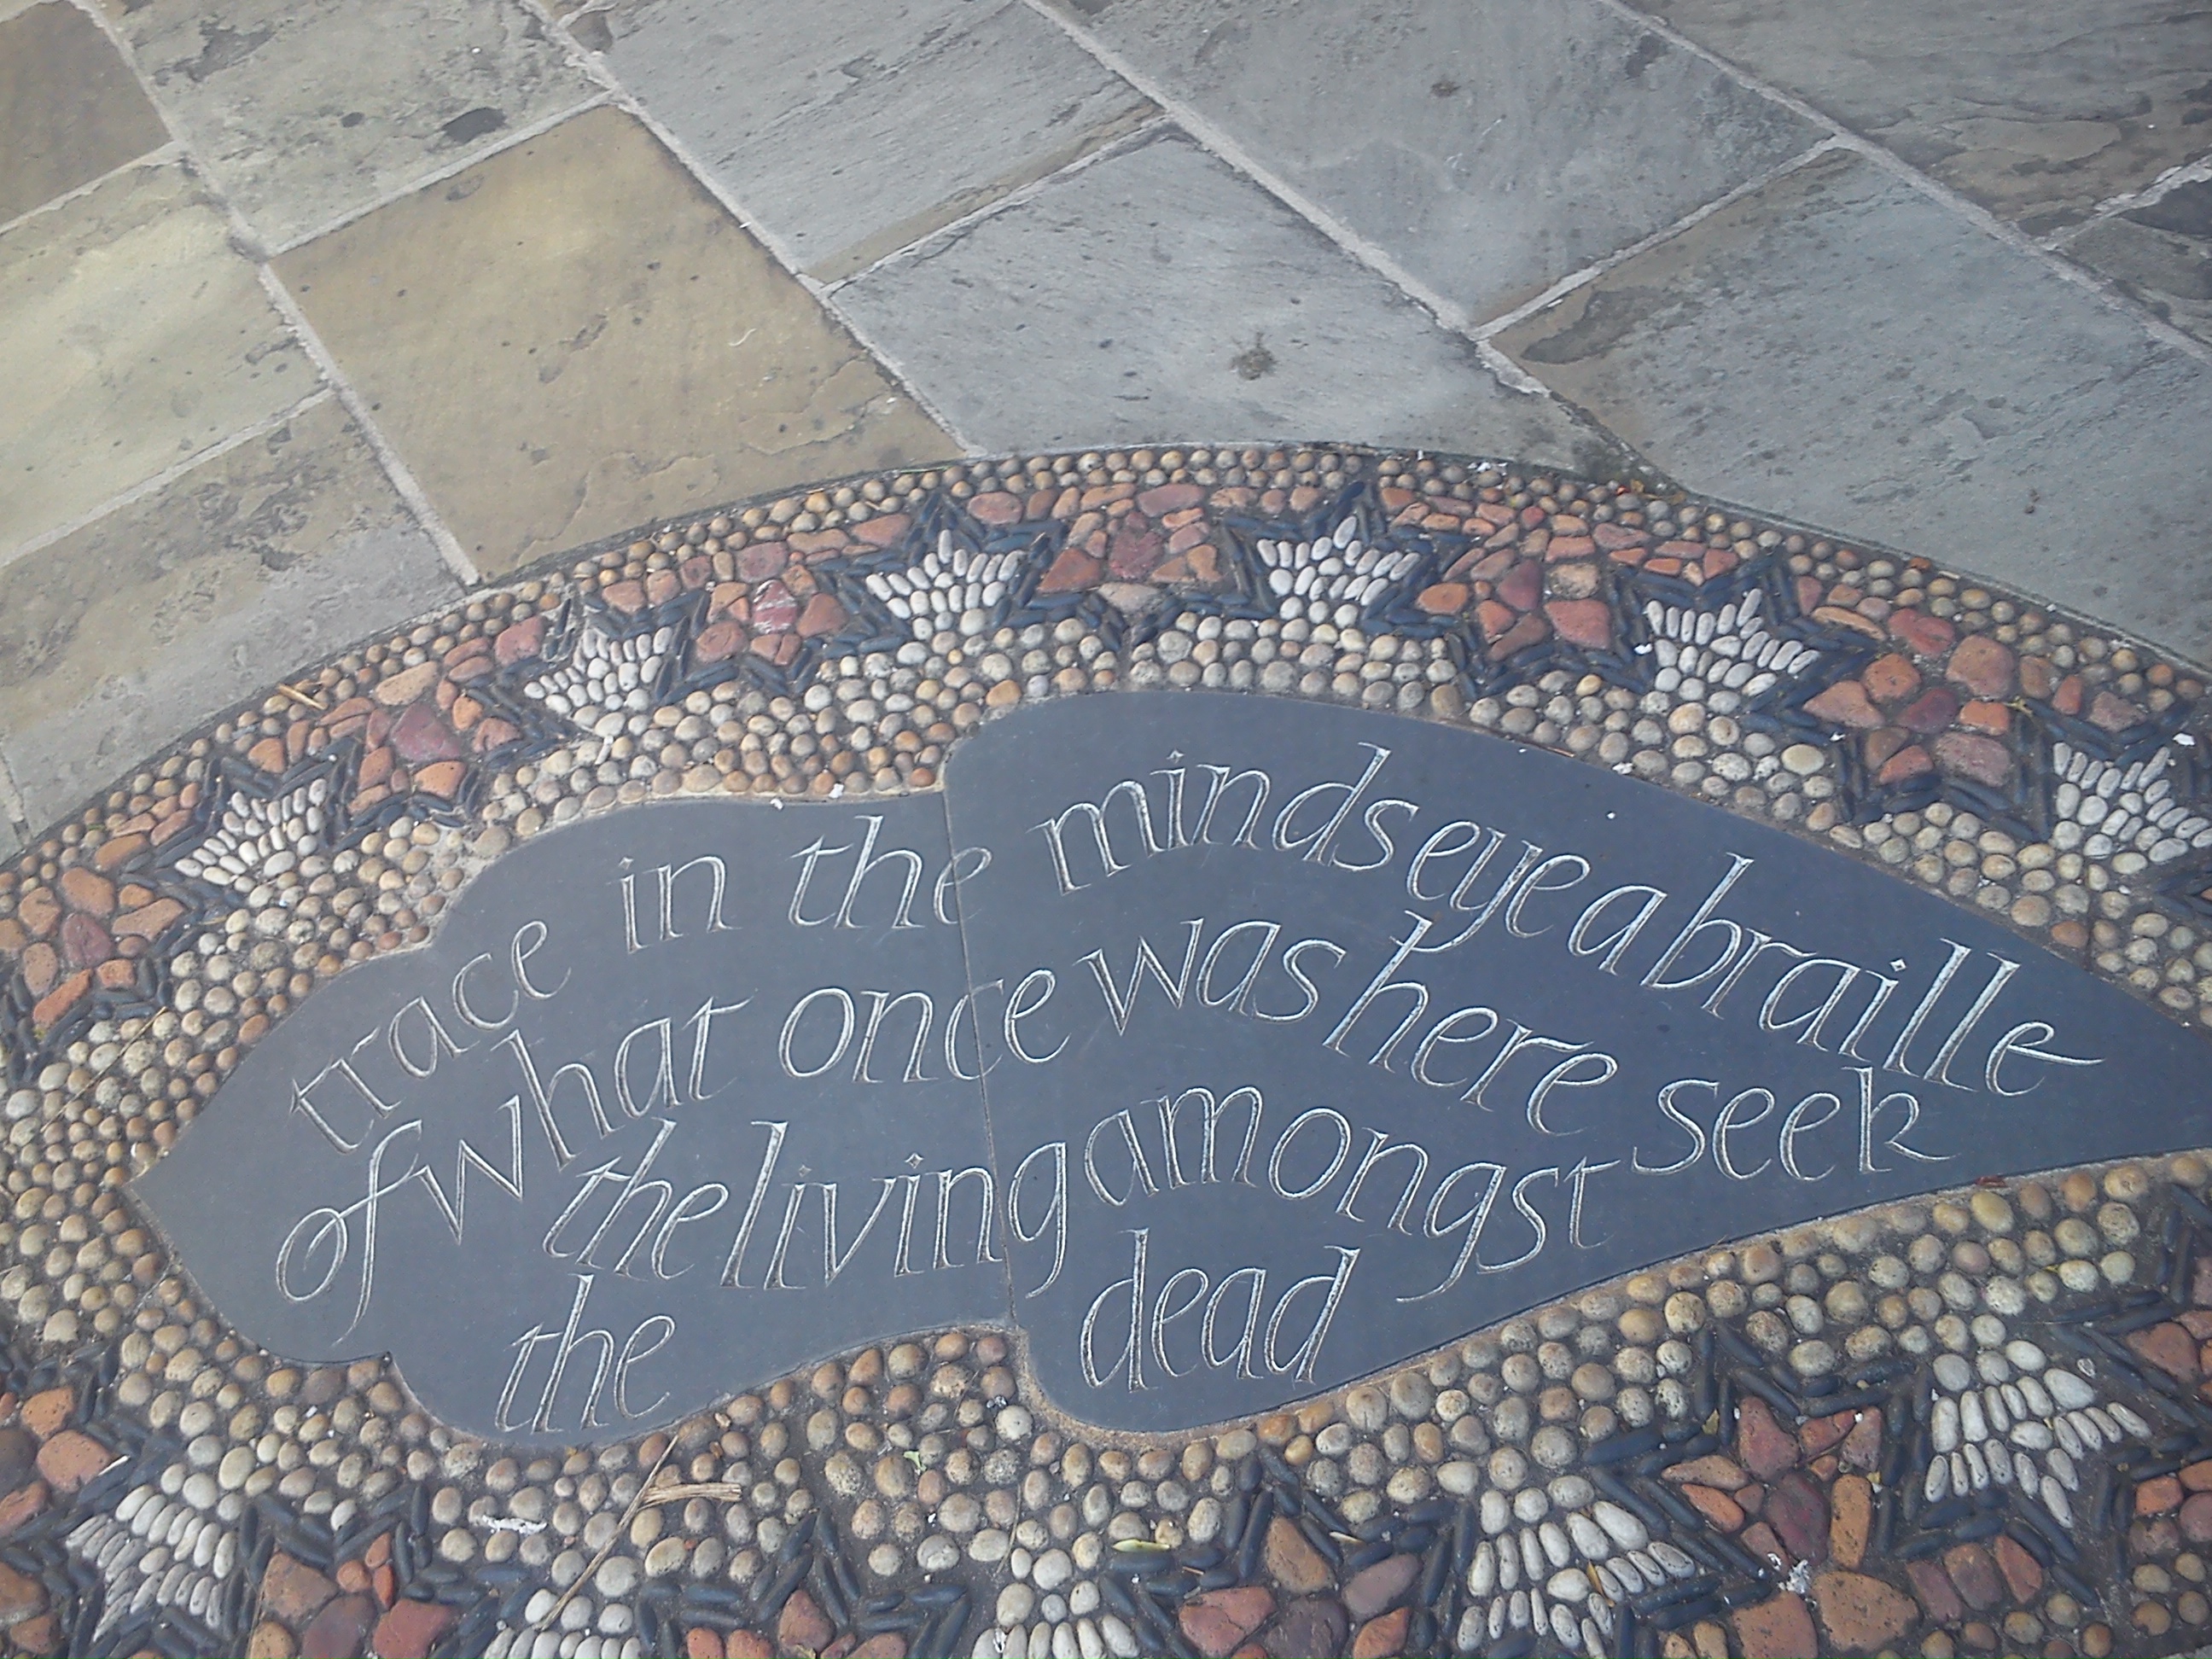 trace in the minds eye a braille
of what once was here seek
the living amongst
the dead